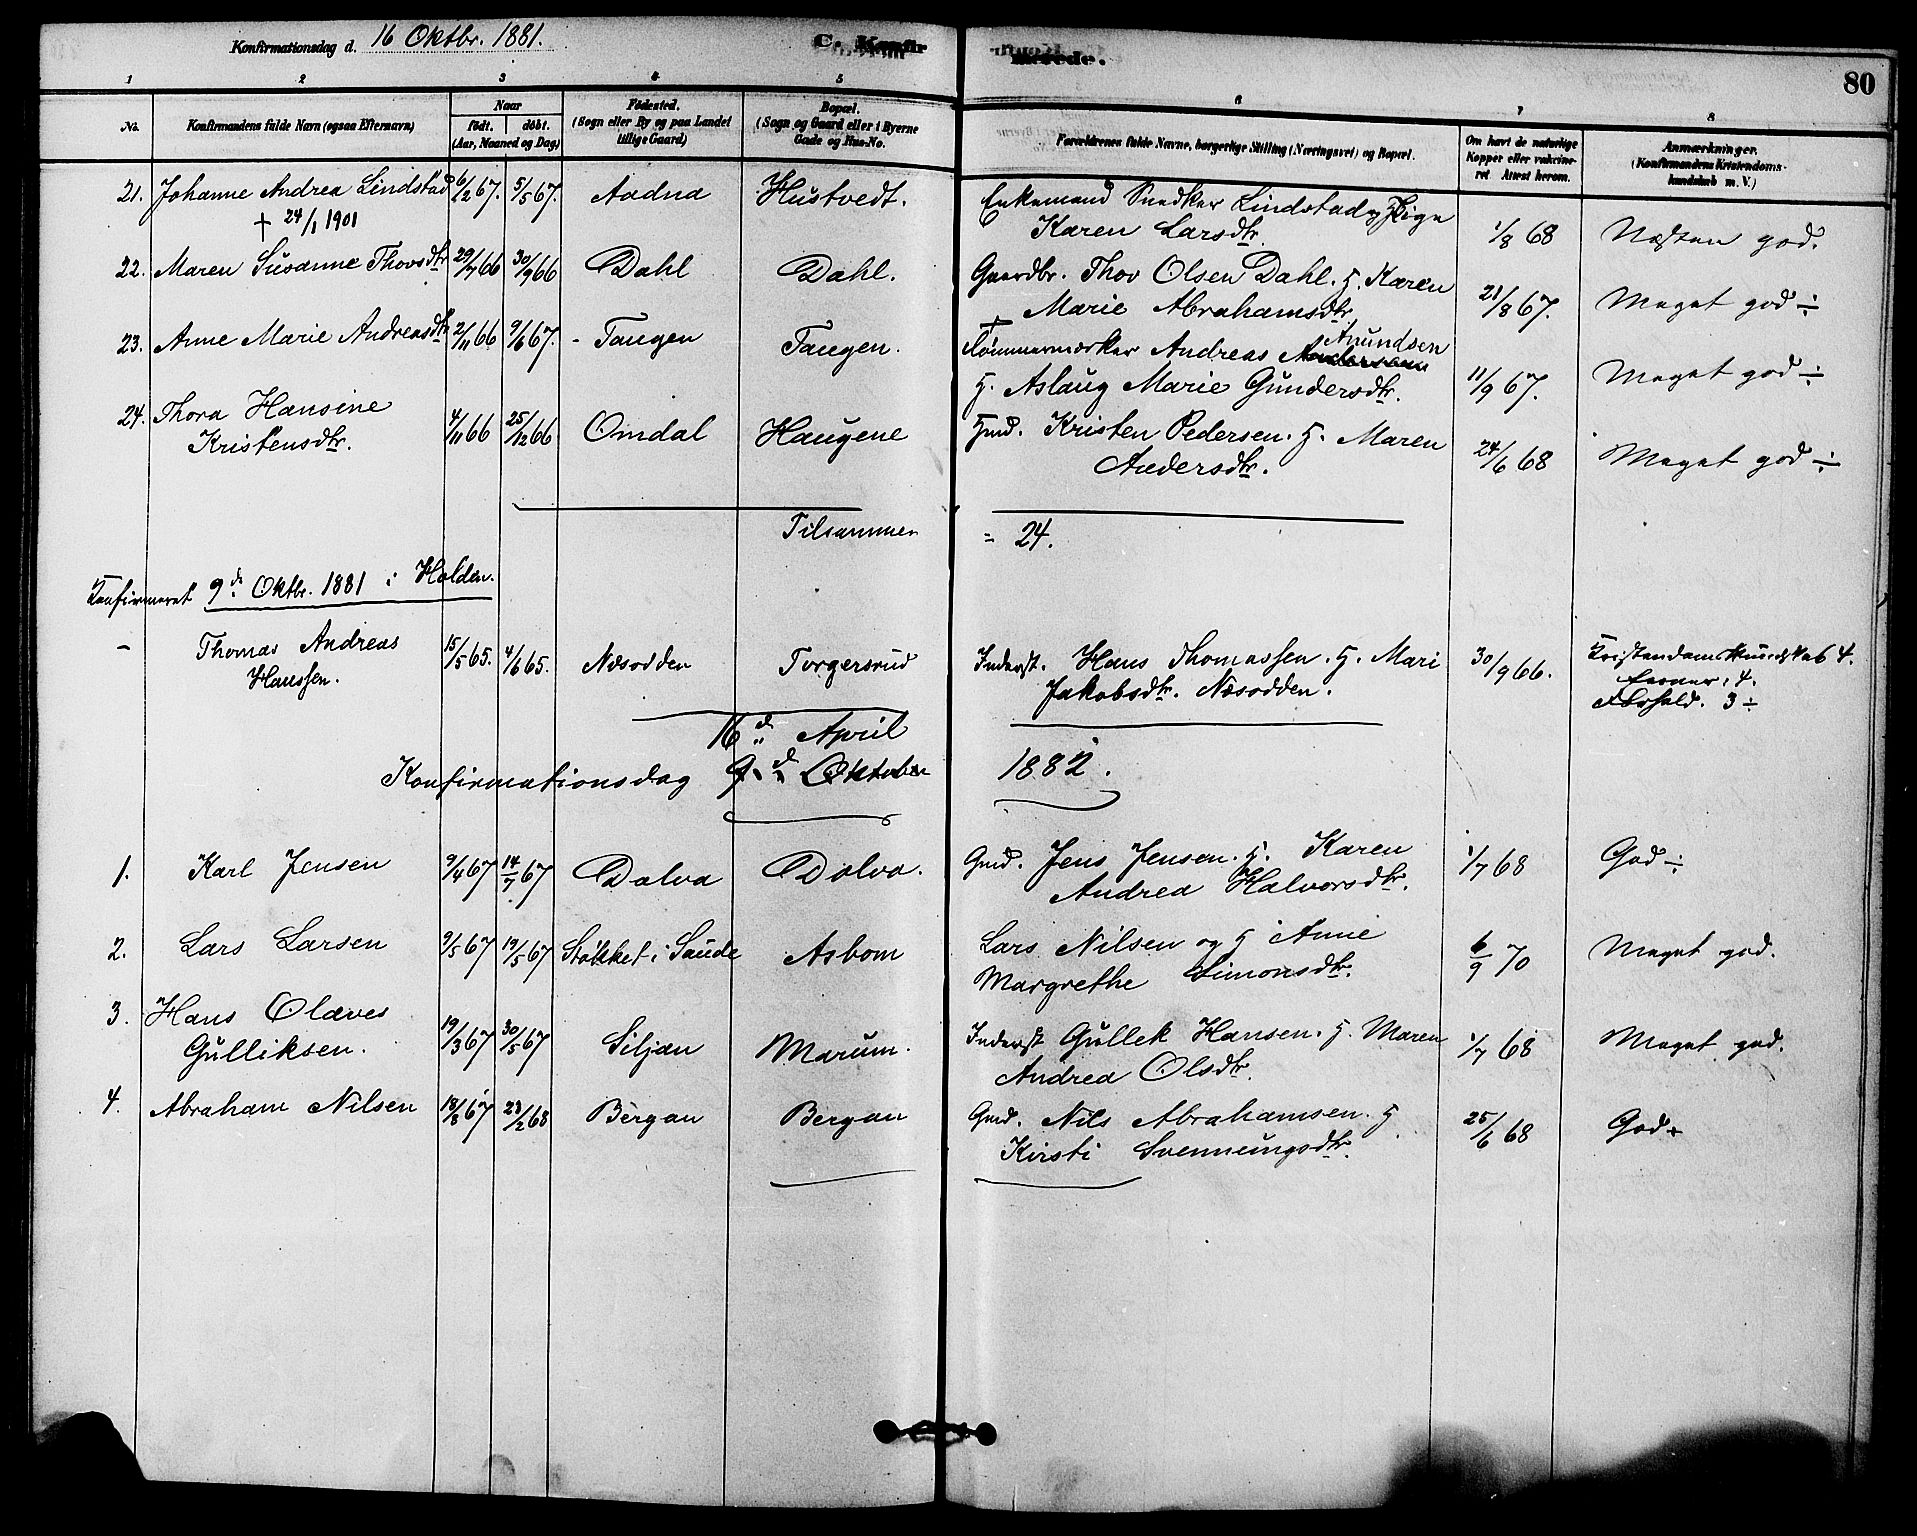 Konfirmationsdag d. 16 Oktbr. 1881.
C. Konfir
merede.
80
1 2 3 4 5 6 7 8
No.
Konfirmandens fulde Navn (ogsaa Efternavn)
Naar
født. døbt.
(Aar, Maaned og Dag)
Fødested.
(Sogn eller By og paa Landet
tillige Gaard)
Bopæl.
(Sogn og Gaard eller i Byerne
Gade og Hus-No.
Forældrenes fulde Navne, borgerlige Stilling (Næringsvei) og Bopæl.
Om havt de naturlige
Kopper eller vakcine-
ret. Attest herom.
Anmærkninger.
(Konfirmandens Kristendoms-
kundskab m. V.)
21. Johanne Andrea Lindstad 6/2 67. 5/5 67. Aadna Hustvedt. Enkemand Snedker Lindstad og Pige
† 24/1 1901 Karen Larsdtr. 1/8 68 Næsten god.
22. Maren Susanne Thovsdtr 29/7 66 30/9 66 Dahl Dahl. Gaardbr. Thov Olsen Dahl. H. Karen
Marie Abrahamsdtr 21/8 67. Meget god ÷
23. Anne Marie Andreasdtr 2/11 66 9/6 67. - Tangen Tangen. Tømmermærker Andreas Amundsen
H. Aslaug Marie Gundersdtr. 11/9 67. Meget god ÷
24. Thora Hansine
Kristensdtr. 4/11 66 25/12 66 Omdal Haugene Hmd. Kristen Pedersen. H. Maren
Andersdtr. 24/6 68 Meget god ÷
Tilsammen = 24.
Konfirmeret 9de Oktbr. 1881 i Holden.
- Thomas Andreas
Hanssen. 15/5 65. 4/6 65. Næsodden Torgersrud Inderst. Hans Thomassen. H. Mari
Jakobsdtr. Næsodden. 30/9 66. Kristendomskundskab 4.
Evner: 4.
Forhold. 3 ÷
16de April
Konfirmationsdag 9de Oktober 1882.
1. Karl Jensen 9/4 67 14/7 67 Dolva Dolva. Gmd. Jens Jensen. H. Karen
Andrea Halvorsdtr. 1/7 68 God ÷
2. Lars Larsen 9/5 67 19/5 67 Støkket i Saude Asbom Lars Nilsen og H Anne
Margrethe Simonsdtr. 6/9 70 Meget god.
3. Hans Olaves
Gulliksen. 19/3 67 30/5 67 Siljan Marum. Inderst Gullek Hansen. H. Maren
Andrea Olsdtr. 1/7 68 Meget god.
4. Abraham Nilsen 18/8 67 23/2 68 Bergan Bergan Gmd. Nils Abrahamsen. H
Kirsti Svennungsdtr. 25/6 68 God +